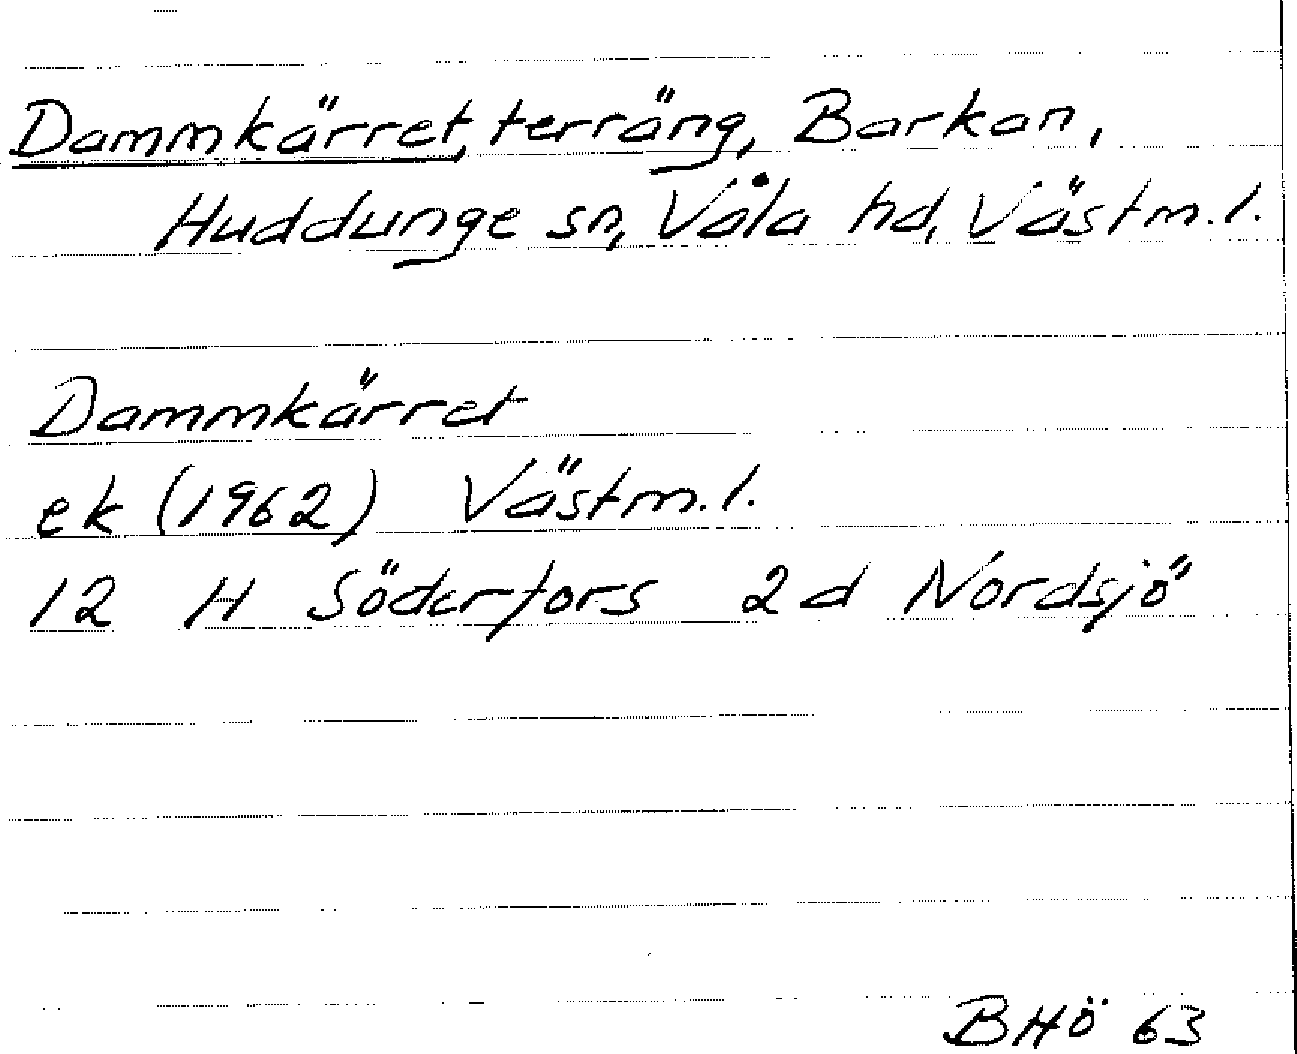 Dammkärret, terräng, Barkan,
Huddunge sn, Våla hd, Västm.l.
Dammkärret
ek (1962) Västm.l.
12 H Söderfors 2d Nordsjö
BHÖ 63